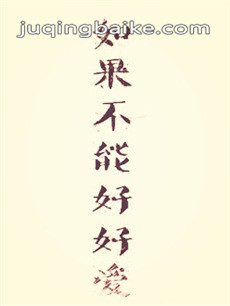 juqingbaike.com
如果不能好好